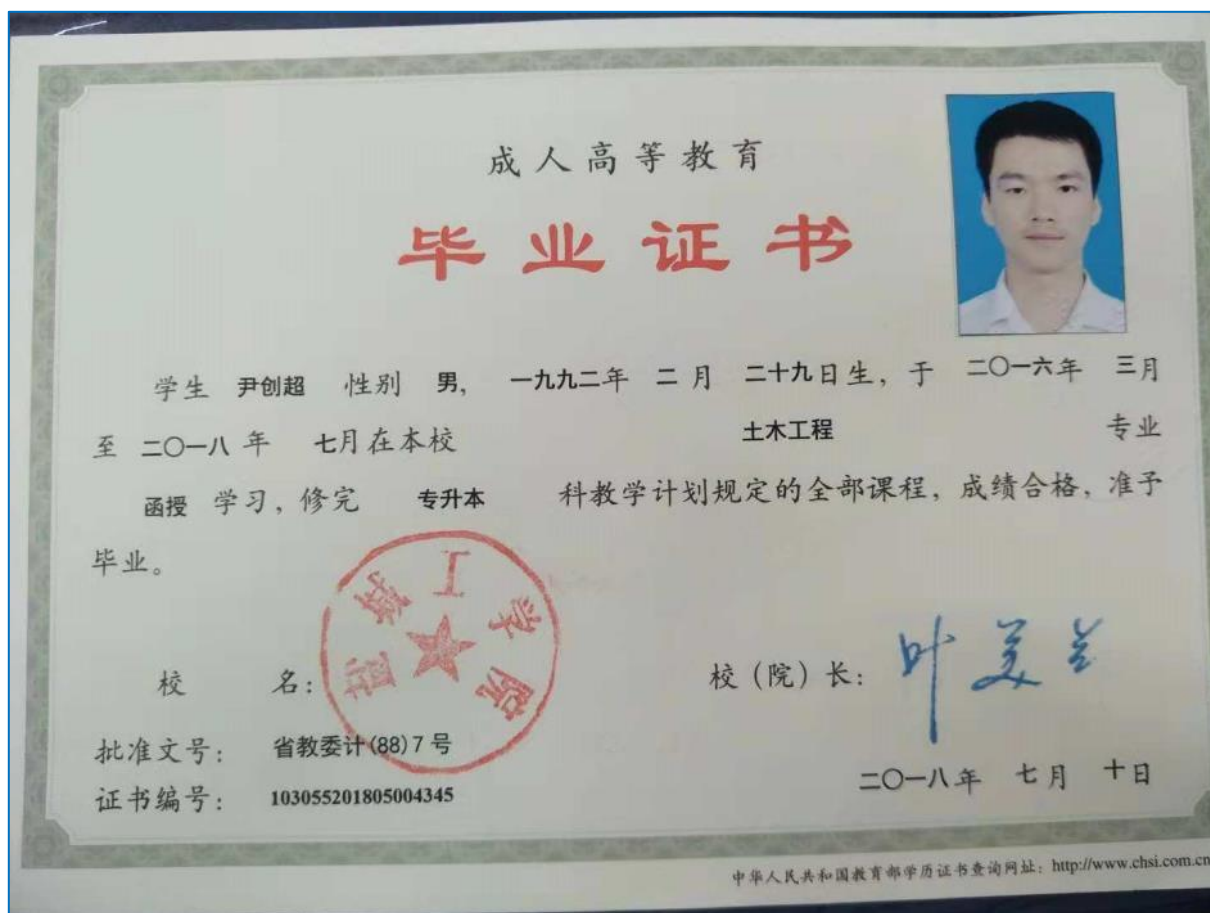 成人高等教育
毕业证书
学生 尹创超 性别 男, 一九九二年 二月 二十九日生, 于 二〇一六年 三月
至 二〇一八年 七月在本校 土木工程 专业
函授 学习, 修完 专升本 科教学计划规定的全部课程, 成绩合格, 准予
毕业。
盐城工学院
校 名: 校(院)长: 叶美兰
批准文号: 省教委计(88)7号
二〇一八年 七月 十日
证书编号: 103055201805004345
中华人民共和国教育部学历证书查询网址: http://www.chsi.com.cn